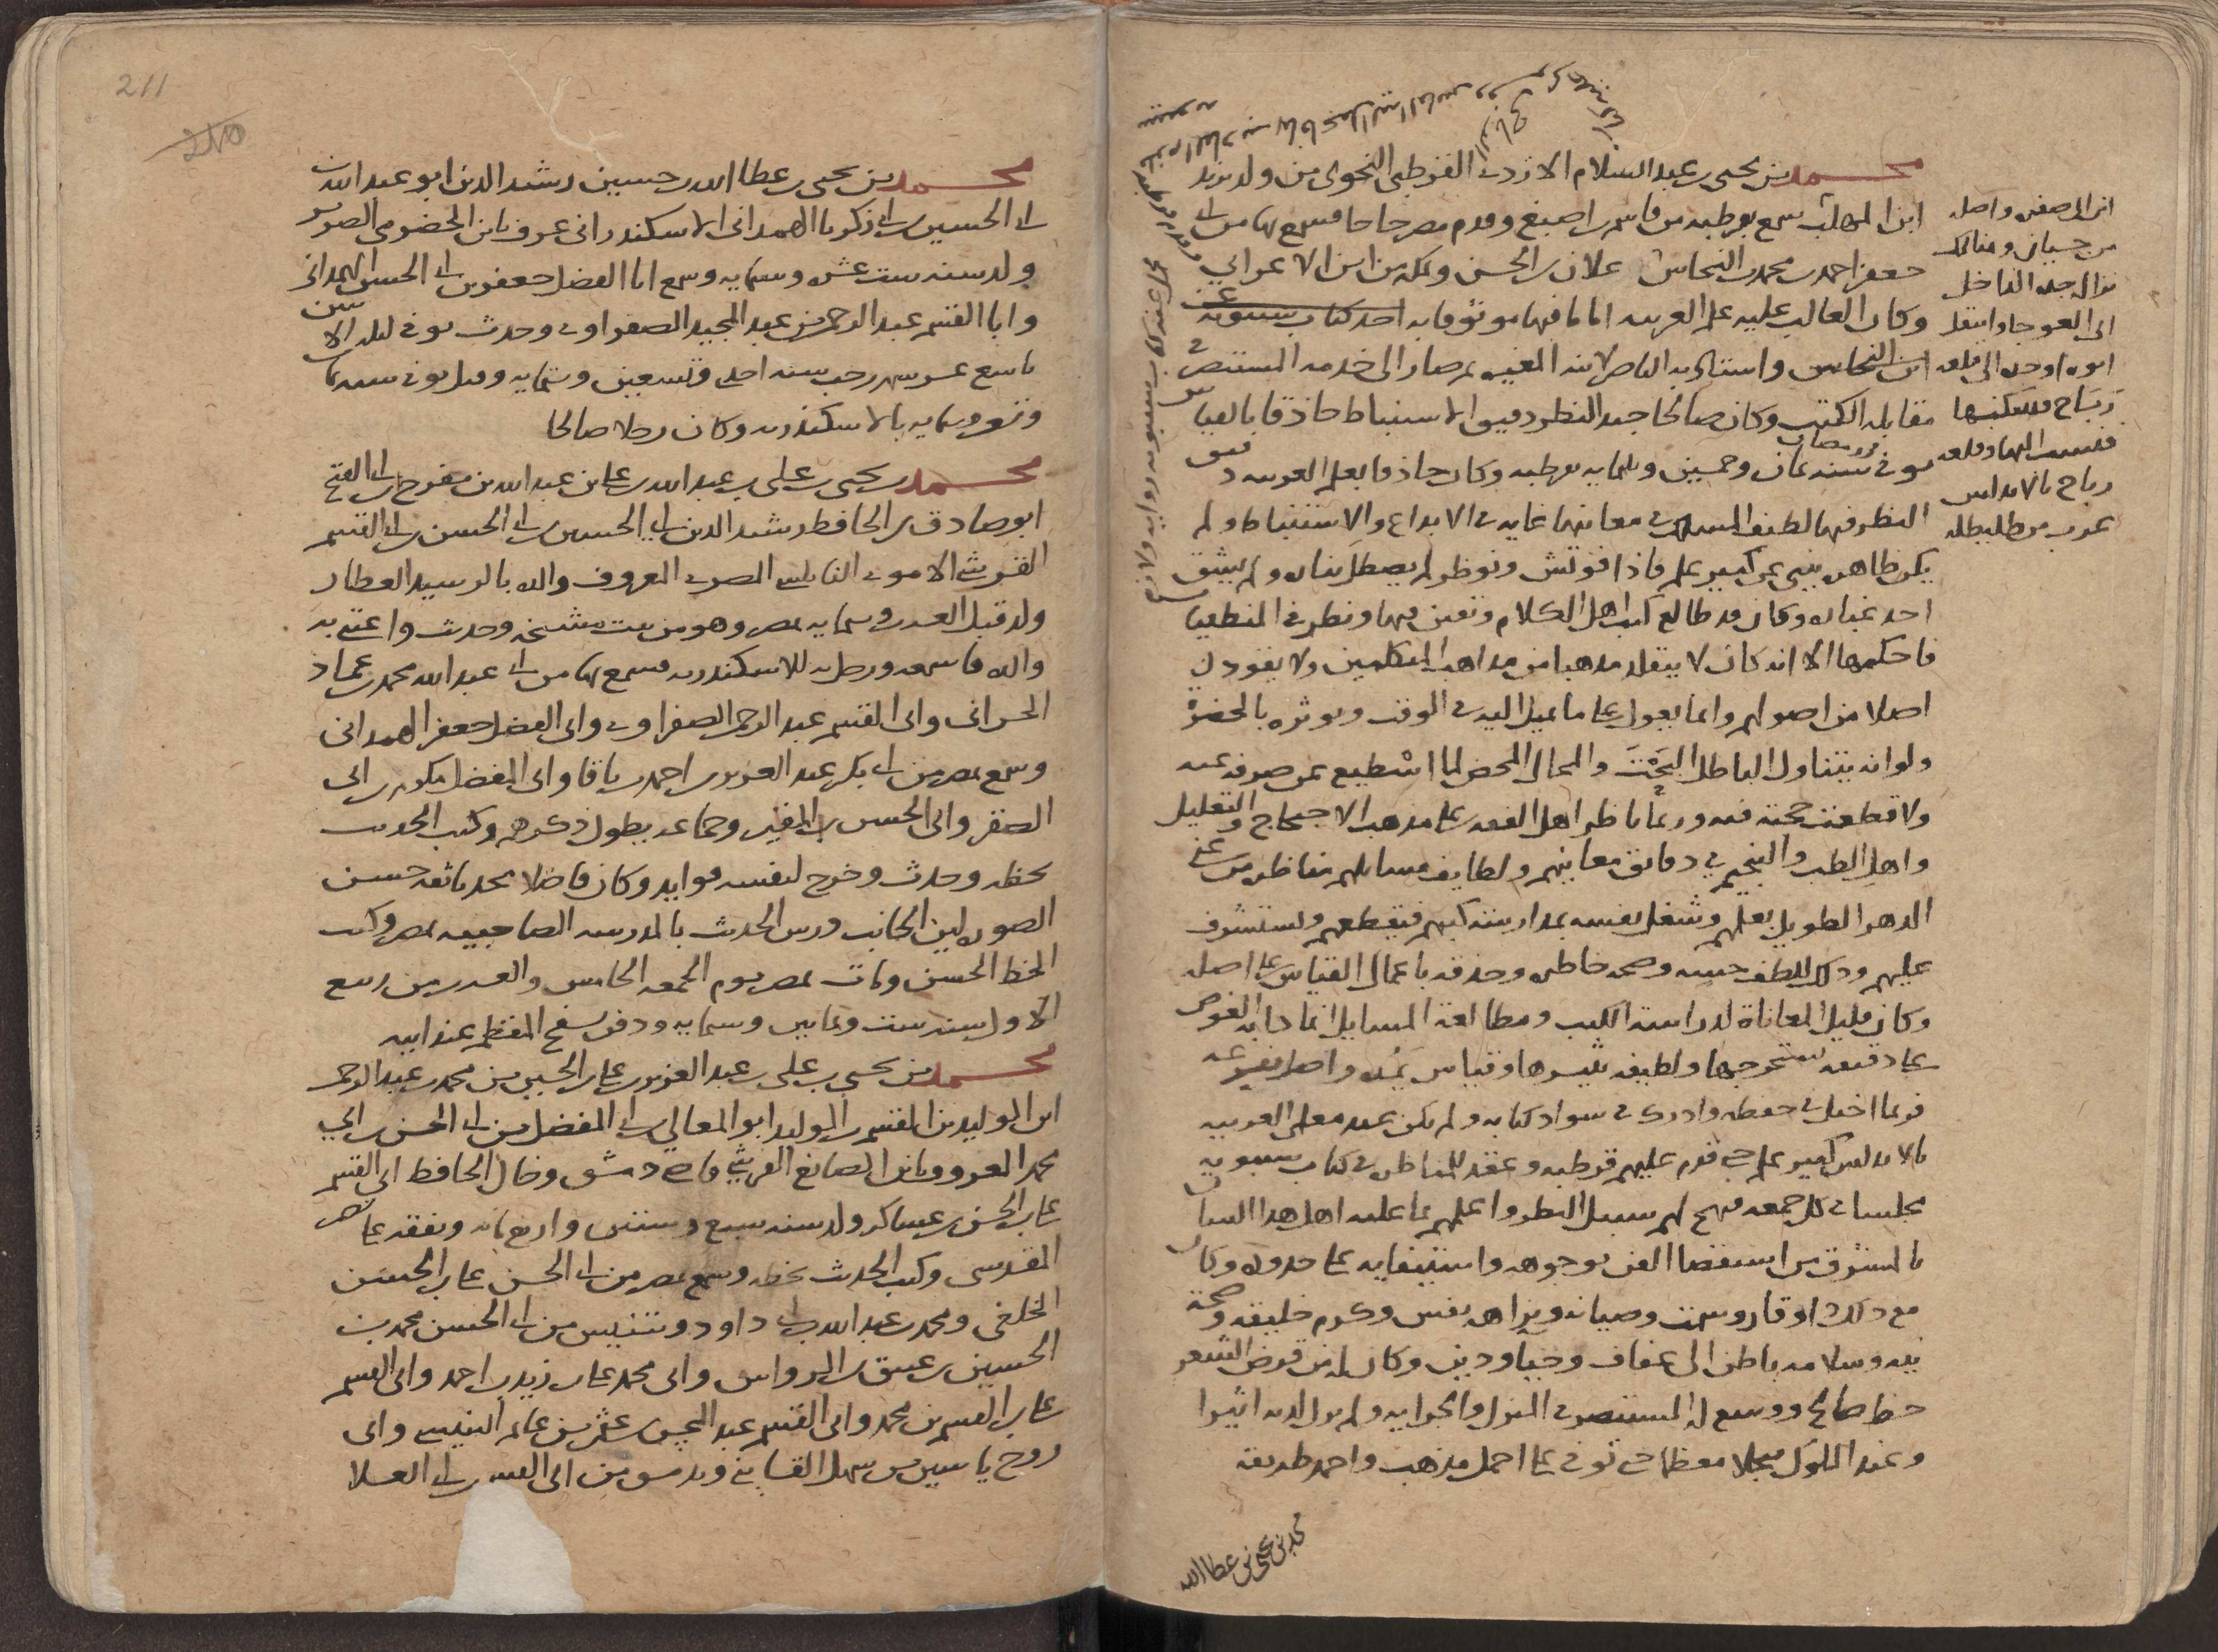 محمد بن يحيى بن عبد السلام الازدي القرطبي النحوي من ولد يزيد
ابن المهلب سمع بقرطبه من قاسم بن اصبغ وقدم مصر حاجا فسمع بها من ابي
جعفر احمد بن محمد بن النحاس علان بن الحسن وبمكه من ابن الاعرابي
وكان الغالب عليه علم العربيه اماما فيها موثوقا به اخذ كتاب سيبويه عن
ابن النحاس واستادبه الناصر لابنه المغيره ثم صار الى خدمه المستنصر في
مقابله الكتب وكان صالحا جيد النظر دقيق الاستنباط حاذقا بالقياس
توفي في رمضان سنه ثمان وخمسين وثلثمايه بقرطبه وكان حاذقا بعلم العربيه دقيق
النظر فيها لطيف المسلك في معانيها غايه في الابداع والاستنباط ولم
يكن ظاهره ينبي عن كبير علم فاذا فوتش ونوظر لم يصطل بناره ولم يشق
احد غباره وكان قد طالع كتب اهل الكلام وتفنن فيها ونظر في المنطقيات
فاحكمها الا انه كان لا يتقلد مذهبا من مذاهب المتكلمين ولا يقود ل
اصلا من اصولهم وانما يعول على ما يميل اليه في الوقت ويوثره بالحضرة
ولو انه يتناول الباطل البحت والمحال المحض لما اسطيع عن صرفه عنه
ولا قطعت حجته فيه وربما ناظر اهل الفقه على مذهب الاحتجاج والتعليل
واهل الطب والتنجيم في دقائق معانيهم ولطايف مسايلهم مناظره من عني
الدهر الطويل بعلمهم وشغل نفسه بمدارسة كتبهم فيقطعهم ويستشرف
عليهم وذلك للطف حسه وصحه خاطره وحذقه باعمال القياس على اصله
وكان قليل المعاناة لدراسة الكتب ومطالعة المسايل انما دابه الغوص
على دقيقه يستخرجها ولطيفه يثيرها وقياس يمده واصل يفرعه
فربما اختل في حفظه وادرك في سواد كتابه ولم يكن عند معلمي العربيه
بالاندلس كبير علم حتى قدم عليهم قرطبه وعقد للمناظره في كتاب سيبويه
مجلسا في كل جمعه فنهج لهم سبيل النظر واعلمهم بما عليه اهل هذا الشان
بالمشرق من استقصا الفن بوجوهه واستيفايه على حدوده وكان
مع ذلك ذا وقار وسمت وصيانه ونزاهه نفس وكرم خليقه وصحة
نيه وسلامه باطن الى عفاف وحيا ودين وكان له من قرض الشعر
حظ صالح ووسع له المستنصر في المنزل والجرايه ولم يزل لديه اثيرا
وعند الملوك مبجلا معظما حتى توفي على اجمل مذهب واحمد طريقه
محمد بن يحيى بن عطا الله
ابن ابي صفره واصله
من جيان
نزال جده الداخل
الى العوجا وانتقل
ابوه او جده الى قلعه
رباح فسكنها
فنسب اليها وقلعه
رباح بالاندلس
غرب من طليطله
211
210
محمد بن يحيى بن عطا الله بن حسين رشيد الدين ابو عبد الله بن
ابي الحسين بن ابي زكريا الهمداني الاسكندراني عرف بابن الحضرمي الضرير
ولد سنه ست عشره وستمايه وسمع ابا الفضل جعفر بن ابي الحسن الهمداني
وابا القسم عبد الرحمن بن عبد المجيد الصفراوي وحدث توفي ليله الاثنين
تاسع عشر شهر رجب سنه احدى وتسعين وستمايه وقيل توفي سنه ثمان
وتسعين وستمايه بالاسكندريه وكان رجلا صالحا
محمد بن يحيى بن علي بن عبد الله بن علي بن عبد الله بن مفرج بن ابي الفتح
ابو صادق بن الحافظ رشيد الدين ابي الحسين بن ابي الحسن بن ابي القسم
القرشي الاموي النابلسي المصري المعروف والده بالرشيد العطار
ولد قبل العشرين وستمايه بمصر وهو من بيت مشيخه وحدث واعتنى به
والده فاسمعه ورحل به للاسكندريه فسمع بها من ابي عبد الله محمد بن عماد
الحراني وابي القسم عبد الرحمن الصفراوي وابي الفضل جعفر الهمداني
وسمع بمصر من ابي بكر عبد العزيز بن احمد بن باقا وابي المفضل مكرم بن ابي
الصقر وابي الحسن بن المقير وجماعه يطول ذكرهم وكتب الحديث
بخطه وحدث وخرج لنفسه فوايد وكان فاضلا محدثا ثقه حسن
الصوره لين الجانب ودرس الحديث بالمدرسه الصاحبيه بمصر وكتب
الخط الحسن ومات بمصر يوم الجمعه الخامس والعشرين من ربيع
الاول سنه ست وثمانين وستمايه ودفن بسفح المقطم عند ابيه
محمد بن يحيى بن علي بن عبد العزيز بن علي بن الحسين بن محمد بن عبد الرحمن
ابن الوليد بن القسم بن الوليد ابو المعالي بن ابي المفضل بن ابي الحسن بن ابي
محمد المعروف بابن الصايغ القرشي قاضي دمشق وخال الحافظ ابي القسم
علي بن الحسن بن عساكر ولد سنه سبع وستين واربع مايه وتفقه على نصر
المقدسي وكتب الحديث بخطه وسمع بمصر من ابي الحسن علي بن الحسن
الخلعي ومحمد بن عبد الله بن ابي داود وبتنيس من ابي الحسن محمد بن
الحسين بن عتيق بن الرواس وابي محمد علي بن زيد بن احمد وابي القسم
علي بن القسم بن محمد وابي القسم عبد المحسن بن عثمن بن غانم التنيسي وابي
روح ياسين بن سهل القايني وبدمشق من ابي القسم بن ابي العلا